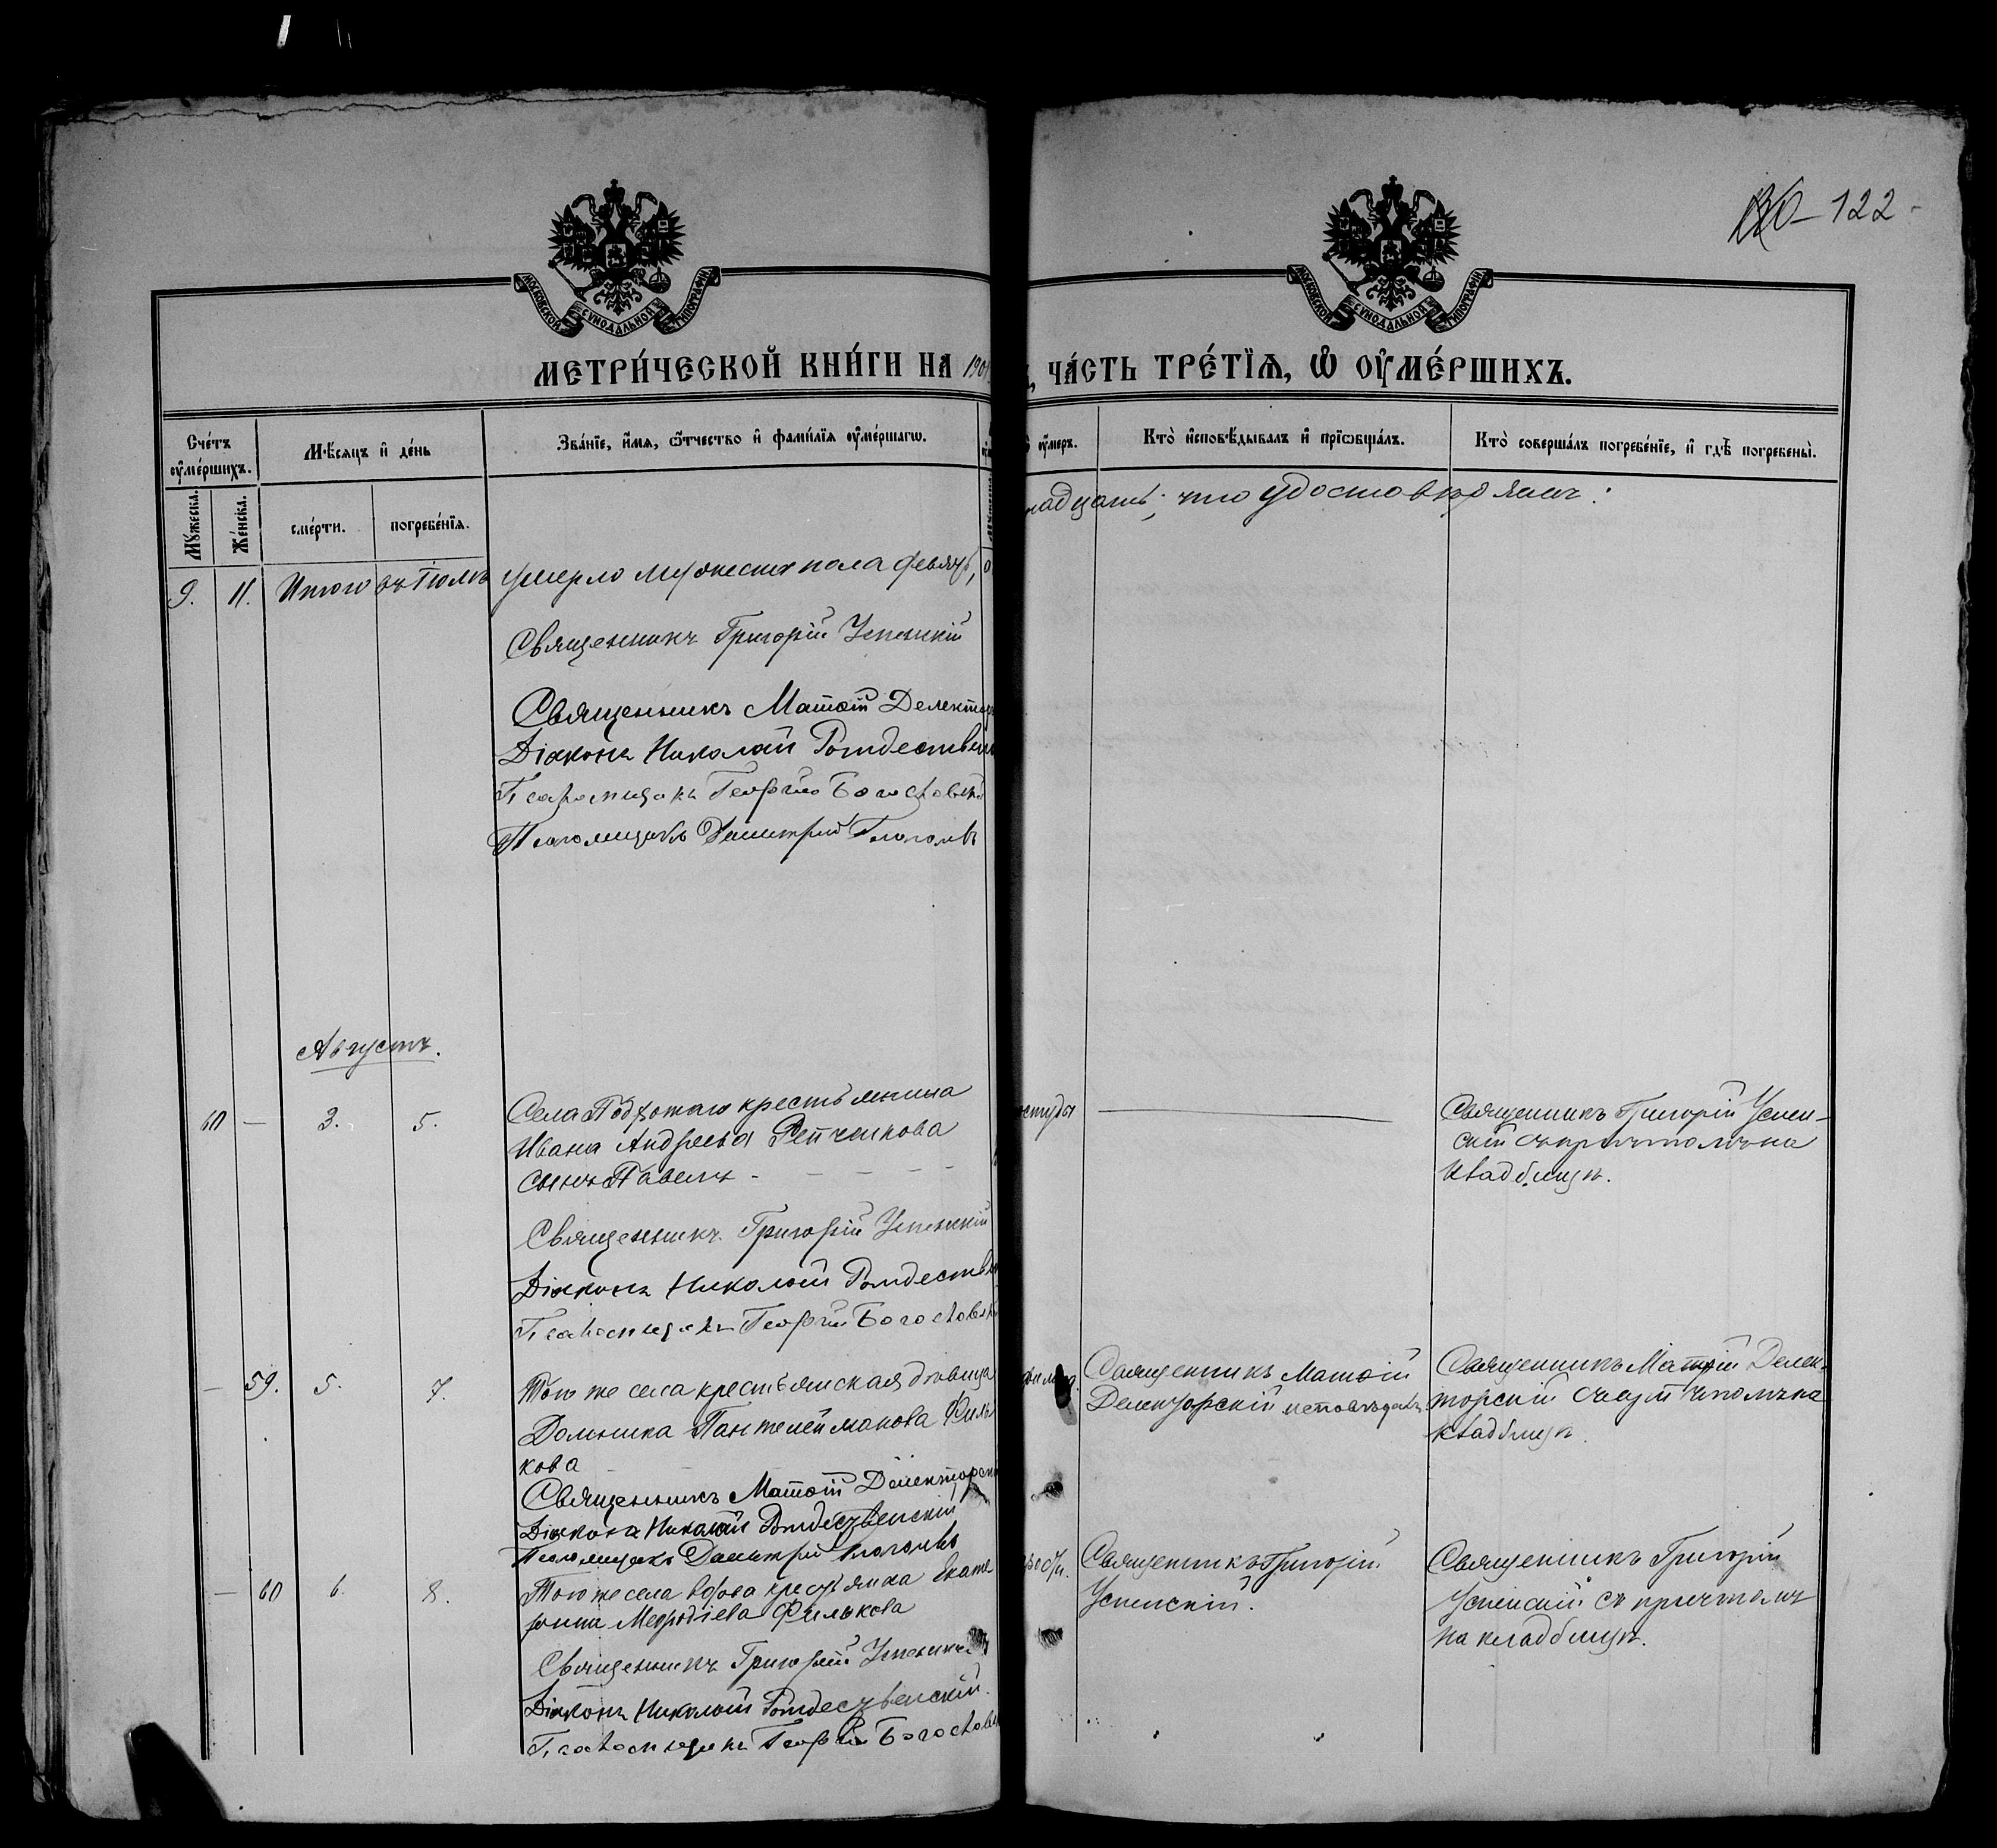 120 – 122
МОСКОВСКОЙ СѴНОДАЛЬНОЙ ТИПОГРАФИИ
МОСКОВСКОЙ СѴНОДАЛЬНОЙ ТИПОГРАФИИ
МЕТРИ́ЧЕСКОЙ КНИ́ГИ НА 190
ЧА́СТЬ ТРЕ́ТЇѦ, Ѡ҆ ОУ҆МЕ́РШИХЪ.
Сче́тъ оу҆ме́ршихъ.
Мѣ́сяцъ и҆ де́нь
Зва́нїе, и҆́мя, ѻ҆́тчество и҆ фами́лїя оу҆ме́ршагѡ.
оу҆́меръ.
Кто̀ и҆сповѣ́дывалъ и҆ прїѡбща́лъ.
Кто̀ соверша́лъ погребе́нїе, и҆ гдѣ̀ погребены̀.
Мꙋ́жеска.
Же́нска.
сме́рти.
погребе́нїя.
9. 11. Итого въ Іюлѣ умерло мужеска пола девять,
надцать; что удостовѣряемъ:
Священникъ Григорій Успенскій
Священникъ Матѳій Делектор
Діаконъ Николай Рождествен
Псаломщикъ Георгій Богословскій
Псаломщикъ Димитрій Глаголевъ
Августъ.
60 — 3. 5. Села Подхожаго крестьянина
Ивана Андреева Репчикова
сынъ Павелъ –
остуды
Священникъ Григорій Успен–
скій съ причтомъ на
кладбищѣ.
Священникъ Григорій Успенскій
Діаконъ Николай Рождествен
Псаломщикъ Георгій Богословск
— 59. 5. 7. Того же села крестьянская дѣвица
Домника Пантелеймонова Филь
кова
Священникъ Матѳій
Делекторскій исповѣдалъ
Священникъ Матѳій Делек–
торскій съ причтомъ на
кладбищѣ.
Священникъ Матѳій Делекторск
Діаконъ Николай Рождественскій
Псаломщикъ Димитрій Глаголевъ
— 60 6. 8. Того же села вдова крестьянка Екате
рина Меѳодіева Филькова
Священникъ Григорій
Успенскій.
Священникъ Григорій
Успенскій съ причтомъ
на кладбищѣ.
Священникъ Григорій Успенскій
Діаконъ Николай Рождественскій.
Псаломщикъ Георгій Богословс